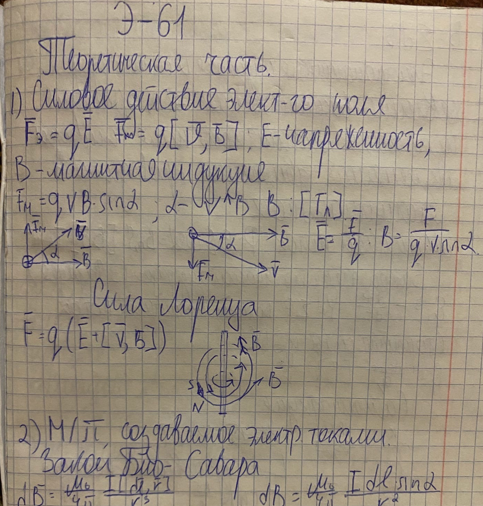 Э-61
Теоретическая часть.
1) Силовое действие элект-го поля
F̄э = qĒ F̄м = q[V̄, B̄]; E-напряженность,
B-магнитная индукция
Fм = qVB·sinα, α- V̄^B̄ B: [Тл]
F̄м V̄ α B̄ α B̄ F̄м V̄ Ē = F̄/q; B = F/(qV sinα)
Сила Лоренца
F̄ = q(Ē+[V̄, B̄])
B̄ B̄ S N
2) М/П, создаваемое электр токами.
Закон Био-Савара
dB̄ = μ₀/4π I[dl̄, r̄]/r³ dB = μ₀/4π I dl sinα/r²